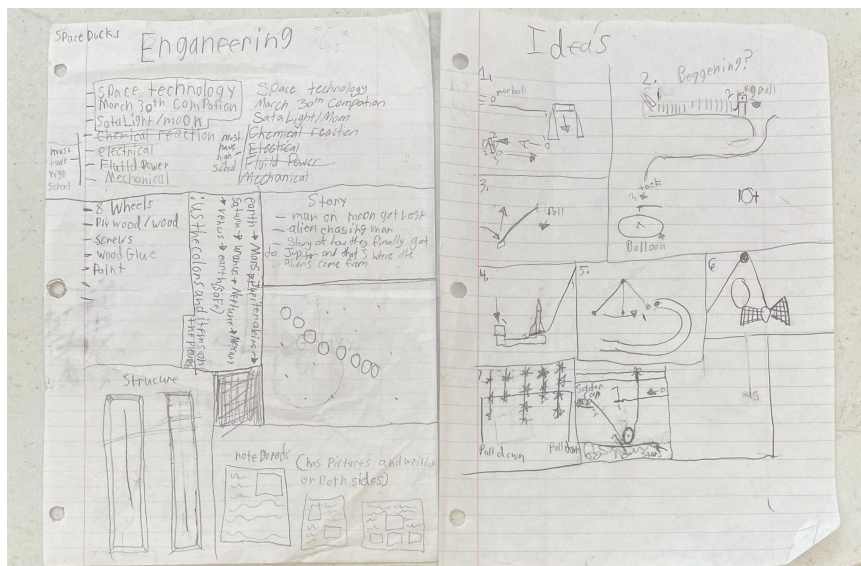 Space Ducks
Enganeering
Space technology
March 30th Compation
SataLight/moon
Chemical reaction
electrical
Fluild Power
Mechanical
must
have
high
School
Space technology
March 30th Compation
SataLight/Mom
Chemical reaction
Electical
Fluild Power
Mechanical
must
have
high
School
8 Wheels
Plywood/wood
Screws
wood Glue
Paint
earth → Mars →
Saturn → uranus → Neptune →
→ venus → earth
Story
man on moon got Lost
alien chasing man
Story of how they finally got
to Jupiter and that's where the
aliens come from
Strucure
note Boards
(has Pictures and writing
on Both sides)
Idea's
1.
marball
2.
Beggening?
tack
Balloon
3.
Ball
4.
5.
6.
Pull down
Pull down